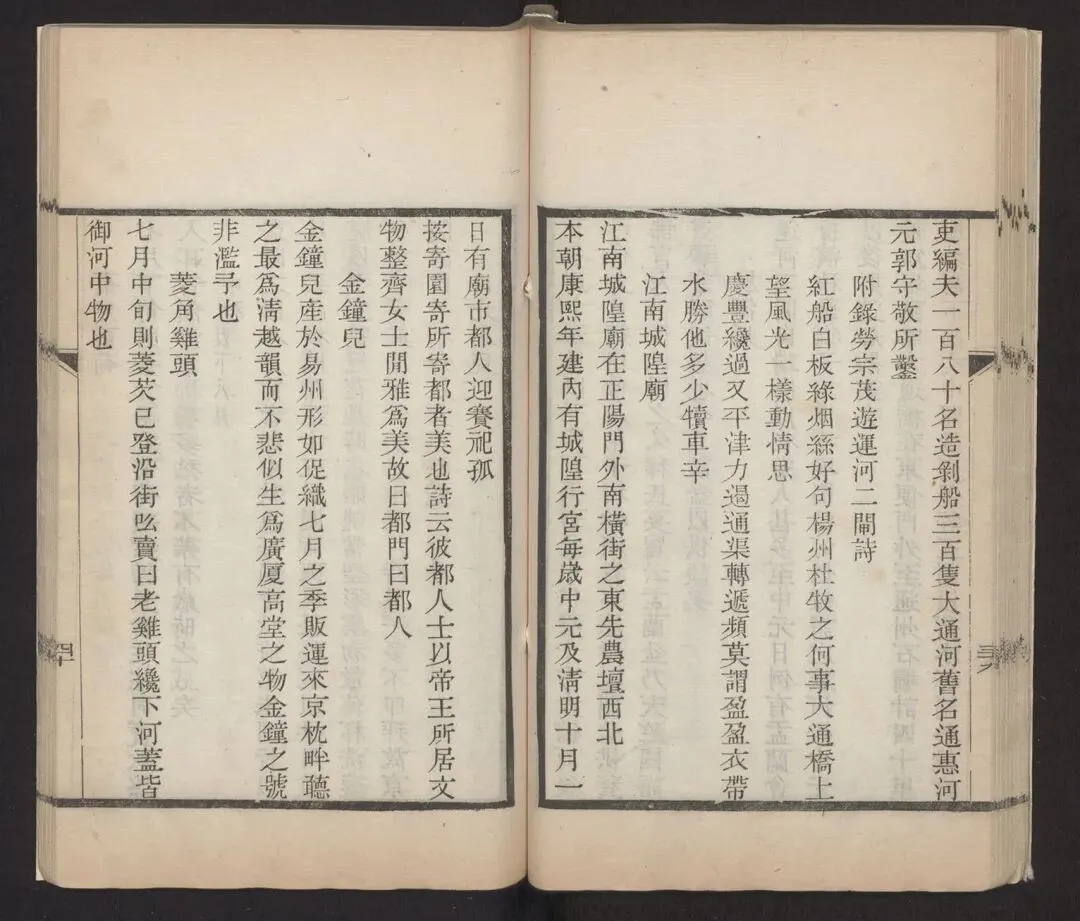 吏編夫一百八十名造剝船三百隻大通河舊名通惠河
元郭守敬所鑿
附錄勞宗茂遊運河二閘詩
紅船白板綠烟絲好句楊州杜牧之何事大通橋上
望風光一樣動情思
慶豐纔過又平津力遏通渠轉遞頻莫謂盈盈衣帶
水勝他多少犢車辛
江南城隍廟
江南城隍廟在正陽門外南橫街之東先農壇西北
本朝康熙年建內有城隍行宮每歲中元及淸明十月一
日有廟市都人迎賽祀孤
按寄園寄所寄都者美也詩云彼都人士以帝王所居文
物整齊女士閒雅爲美故曰都門曰都人
金鐘兒
金鐘兒產於易州形如促織七月之季販運來京枕畔聽
之最爲淸越韻而不悲似生爲廣厦高堂之物金鐘之號
非濫予也
菱角雞頭
七月中旬則菱芡已登沿街吆賣曰老雞頭纔下河蓋皆
御河中物也